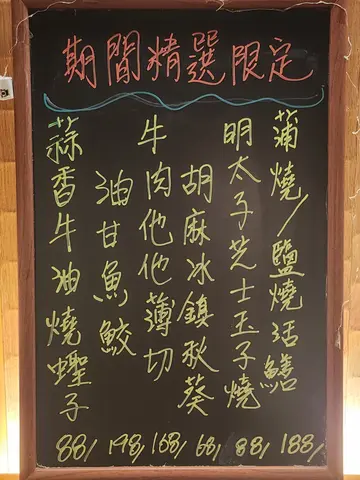 期間精選限定
蒲燒/鹽燒活鱔 188/
明太子芝士玉子燒 88/
胡麻冰鎮秋葵 68/
牛肉他他薄切 168/
油甘魚鮫 198/
蒜香牛油燒蟶子 88/